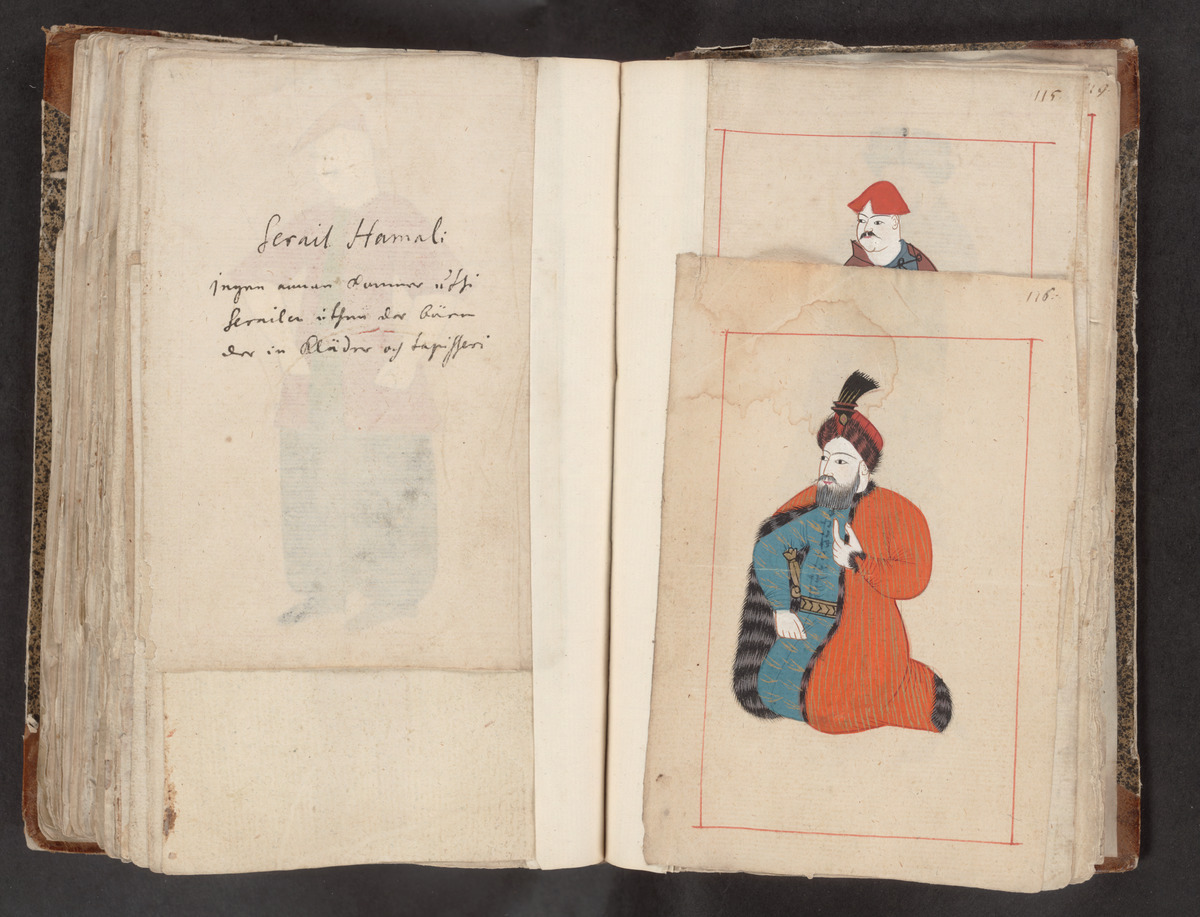 Serail Hamali
ingen annan kommer uthi
Serailen uthan der bära
der in Kläder och tapisseri
115.
19
116.